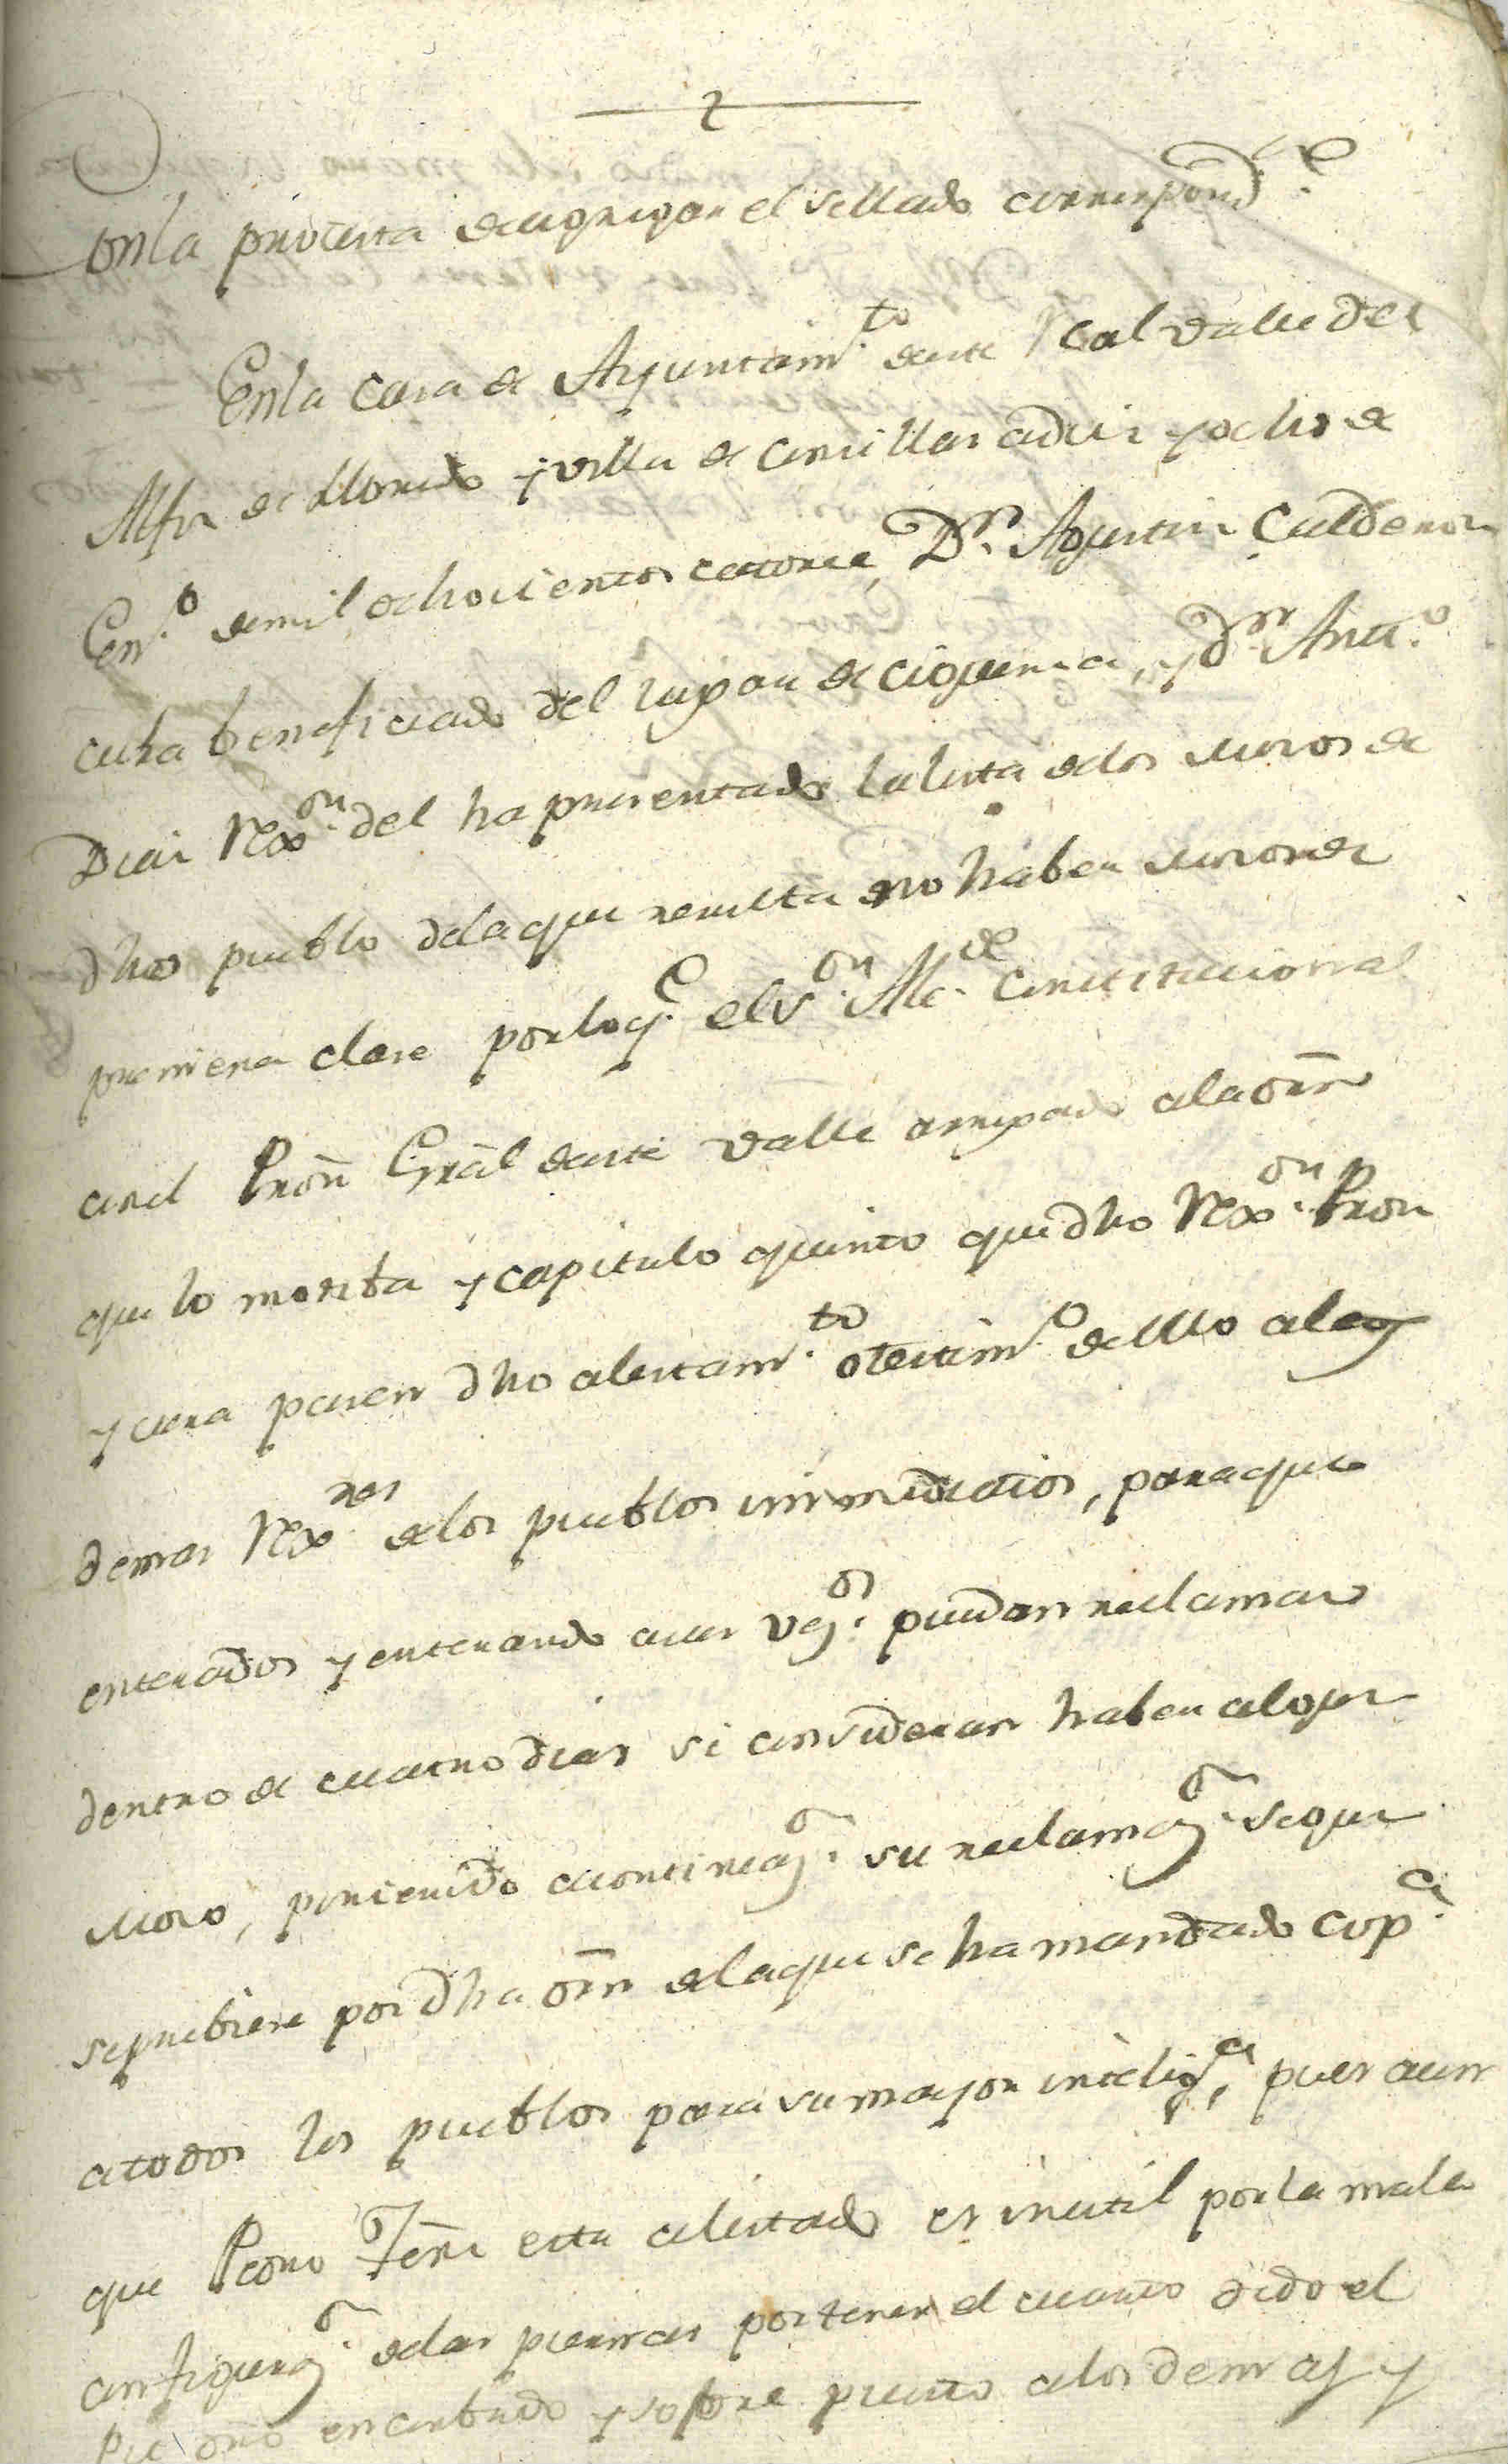 2
Conla protexta de agregar el sellado correspond.te
Enla casa de Ayuntam.to de este Real valle del
Alfoz de Lloredo y villa de Comillas a diez y ocho de
En.o de mil ochocientos catorce, D.n Agustin Calderon
cura beneficiado del lugar de Cigüenza, y D.n Ant.o
Diaz Rex.or del ha presentado la lista de los mozos de
dho pueblo de la que resulta no haber mozo de
primera clase por lo q.e el S.or Alc.de Constitucional
con el Pror Gral de este valle arreglado a la orn
que lo motiba y capitulo quinto que dho Rex.or Pror
y cura pasen dho alistam.to o testim.o de ello a los
demas Rex.res de los pueblos inmediatos, para que
enterados y enterando a sus vez.os puedan reclamar
dentro de cuatro dias si consideran haber algun
mozo, poniendo a continuaz.on su reclamaz.on segun
se prebiene por dha orn de la que se ha mandado cop.a
a todos los pueblos para su mayor intelig.a, pues aun
que Pedro Ferz esta alistado es inutil por la mala
configuraz.on de las piernas por tener el cuarto dedo el
Pie dro encorbado y sobre puesto a los demas y